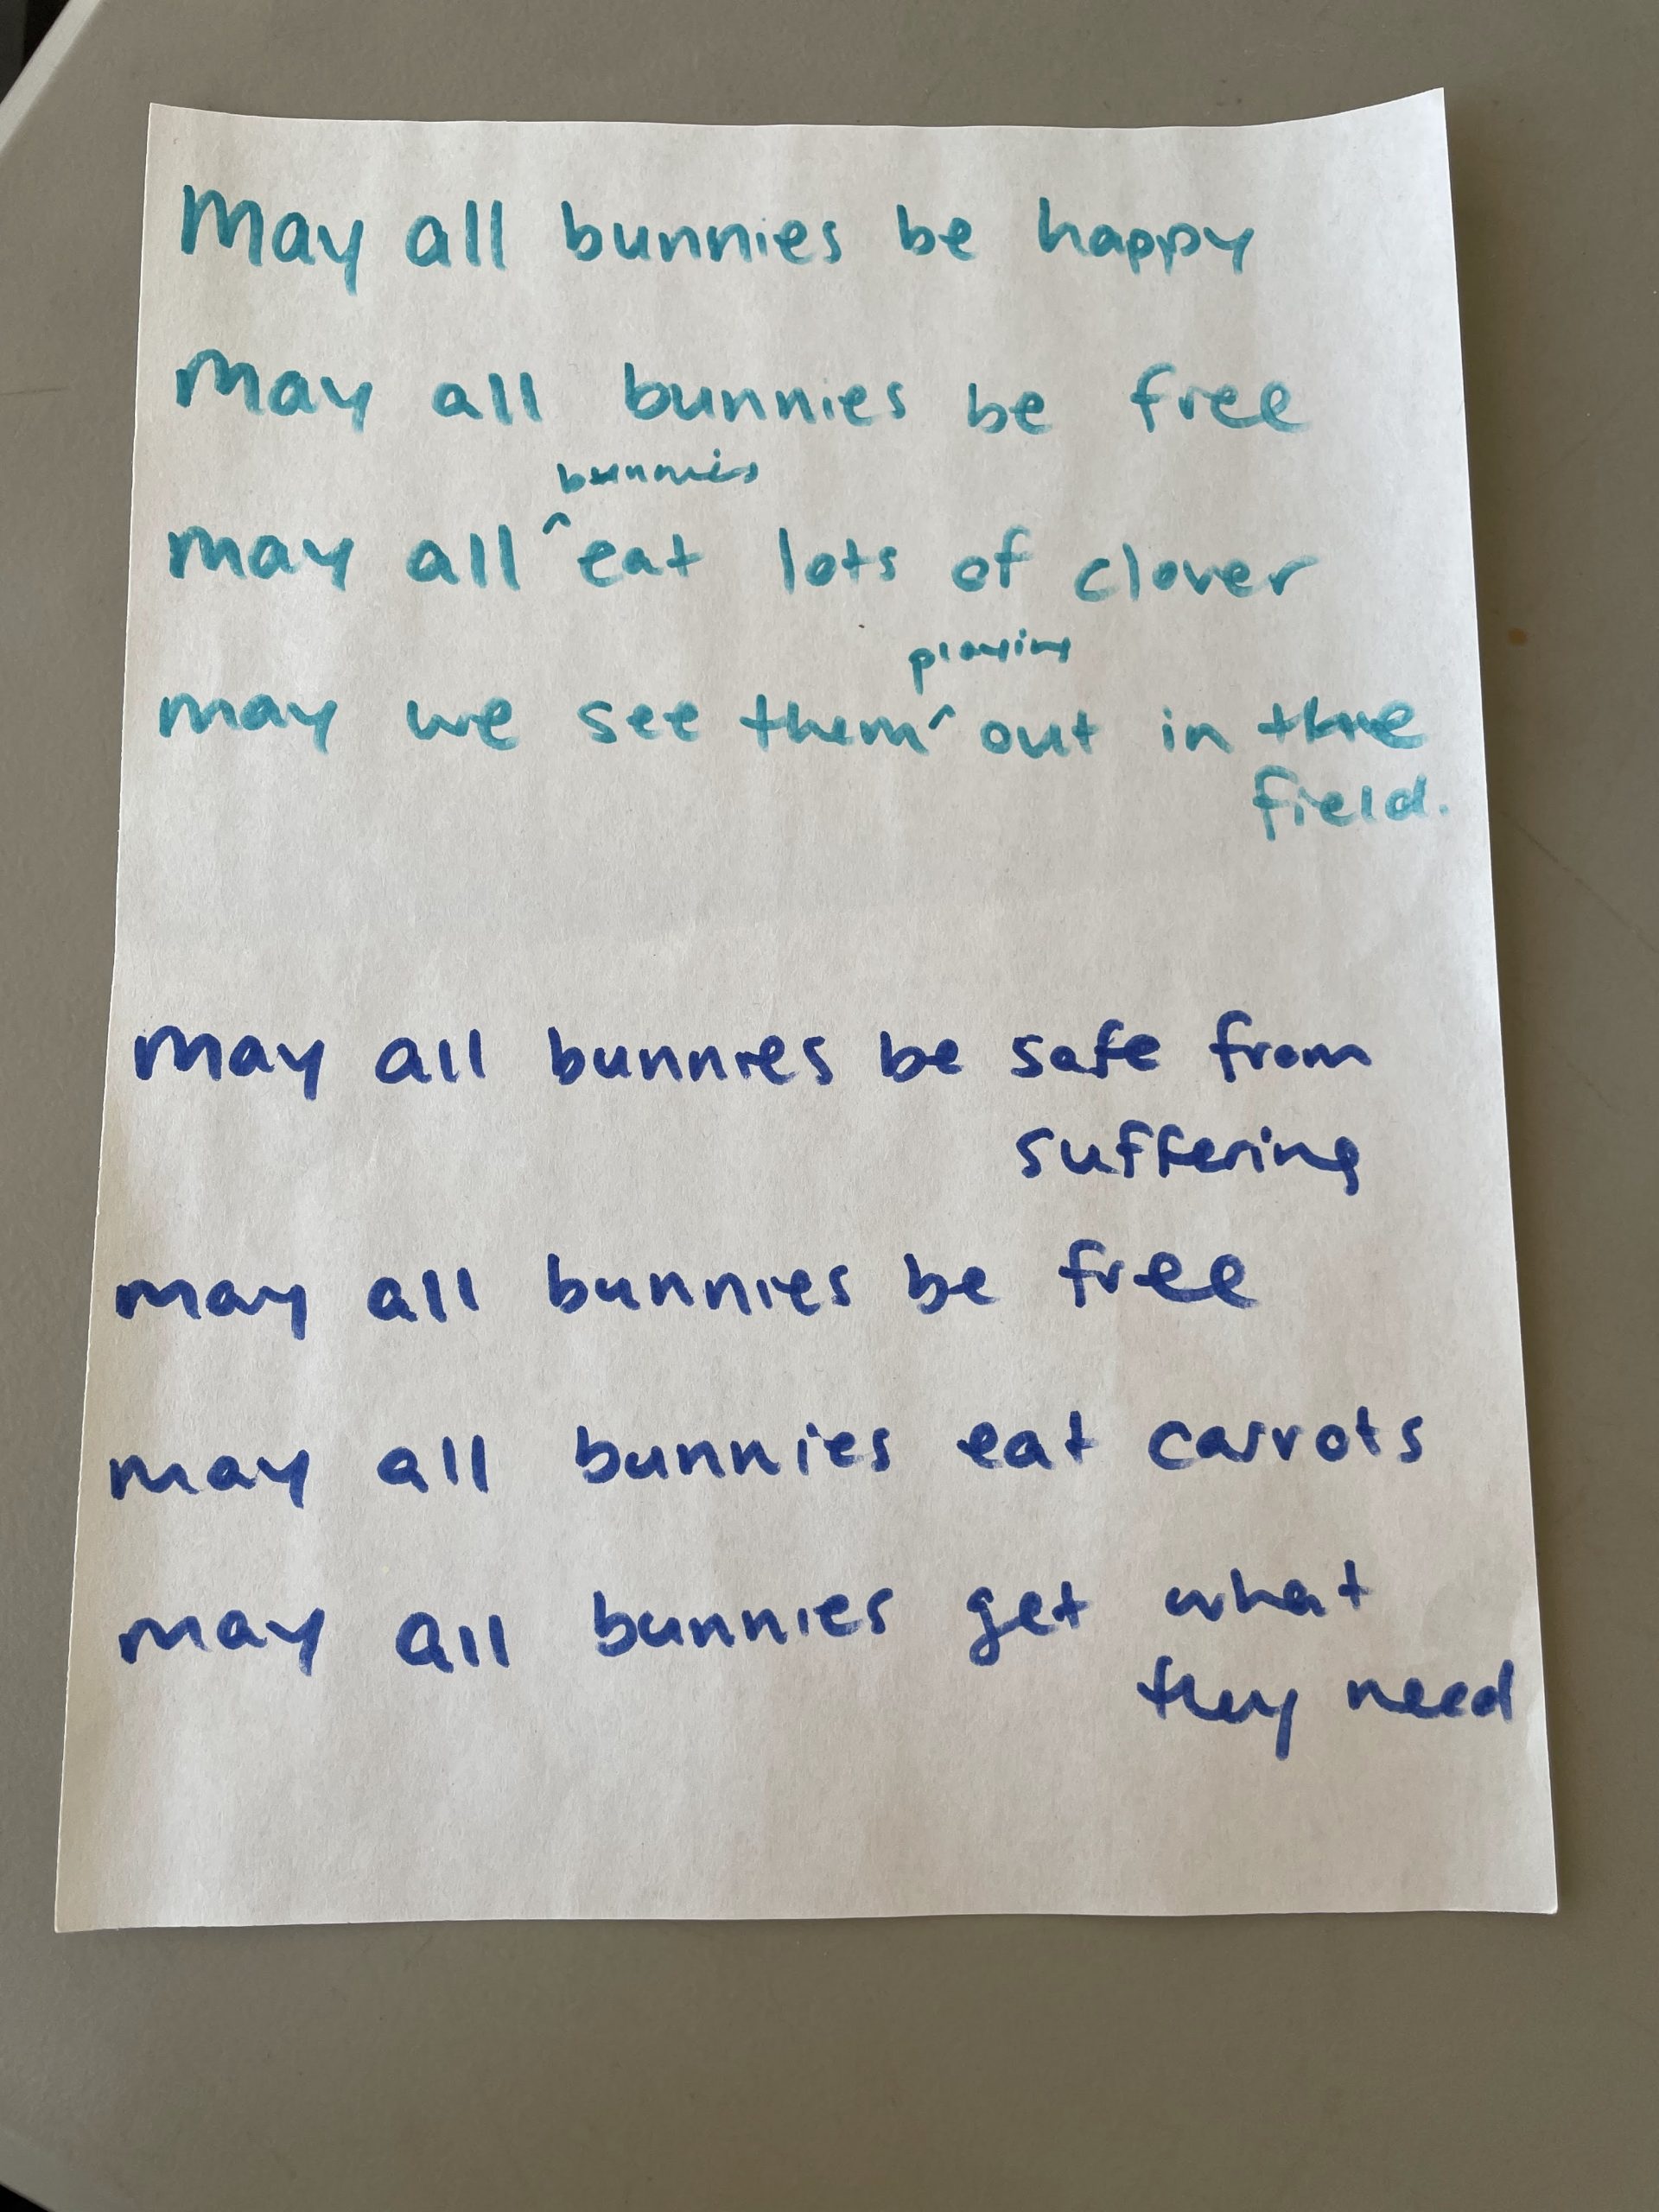 May all bunnies be happy
May all bunnies be free
bunnies
may all ^ eat lots of clover
playing
may we see them ^ out in the
field.
may all bunnies be safe from
suffering
may all bunnies be free
may all bunnies eat carrots
may all bunnies get what
they need